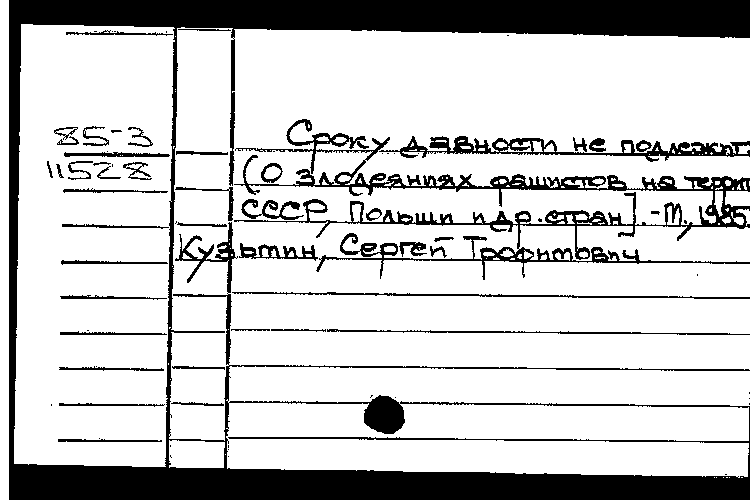 85-3
Сроку давности не подлежит
11528
(О злодеяниях фашистов на террит
СССР, Польши и др. стран]. - М., 1985.
Кузьмин, Сергей Трофимович